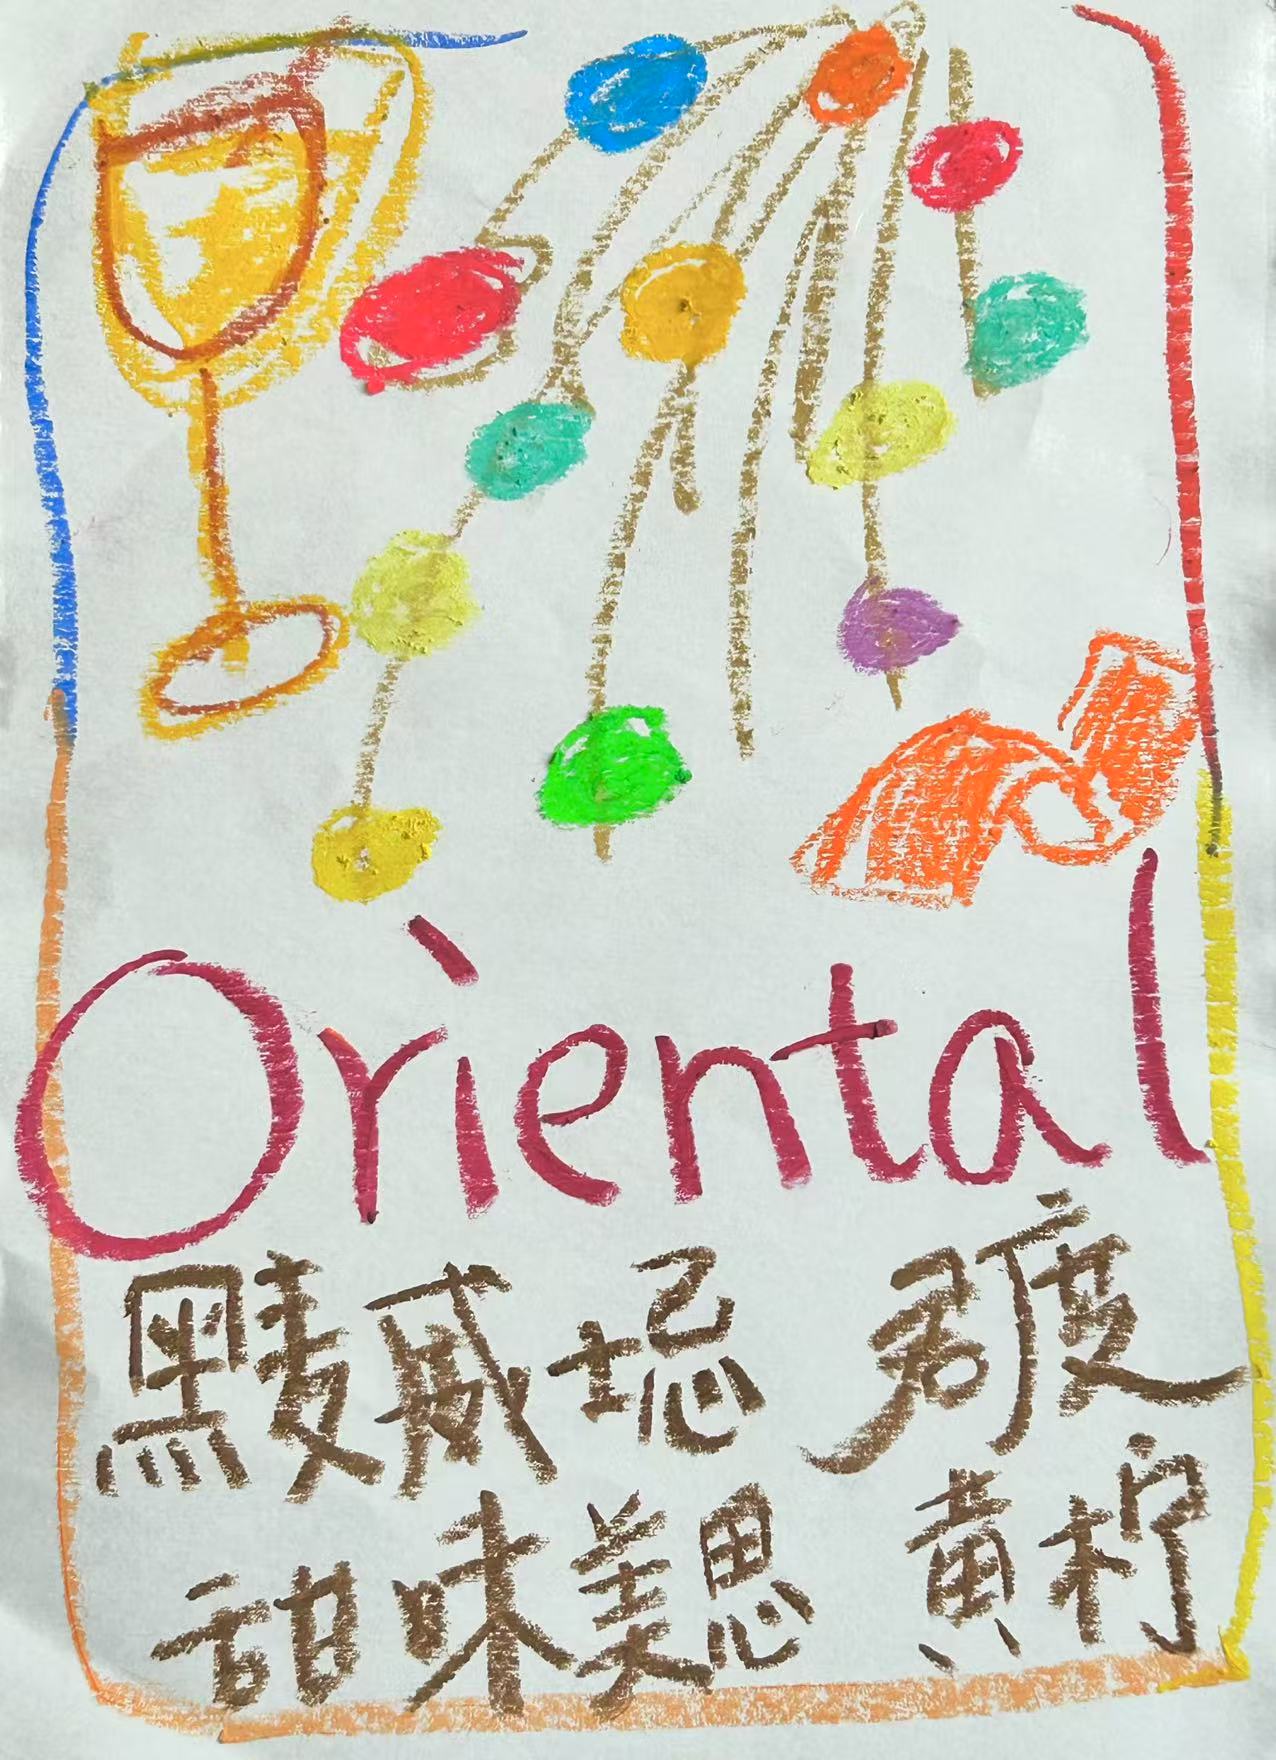 Oriental
黑麦威士忌 君度
甜味美思 黄柠